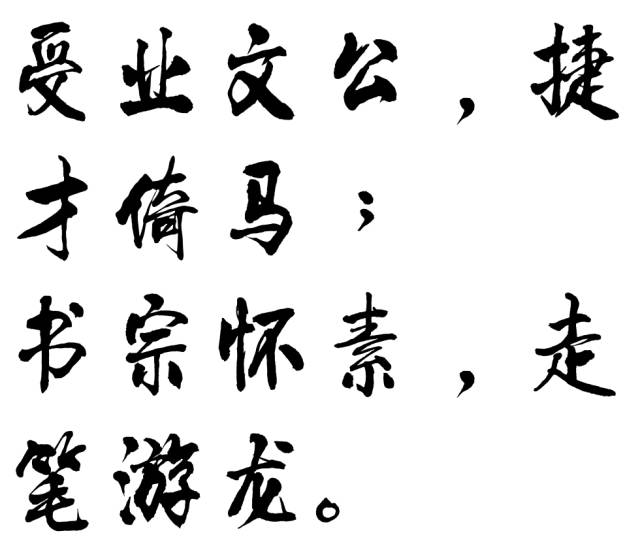 受业文公，捷
才倚马；
书宗怀素，走
笔游龙。